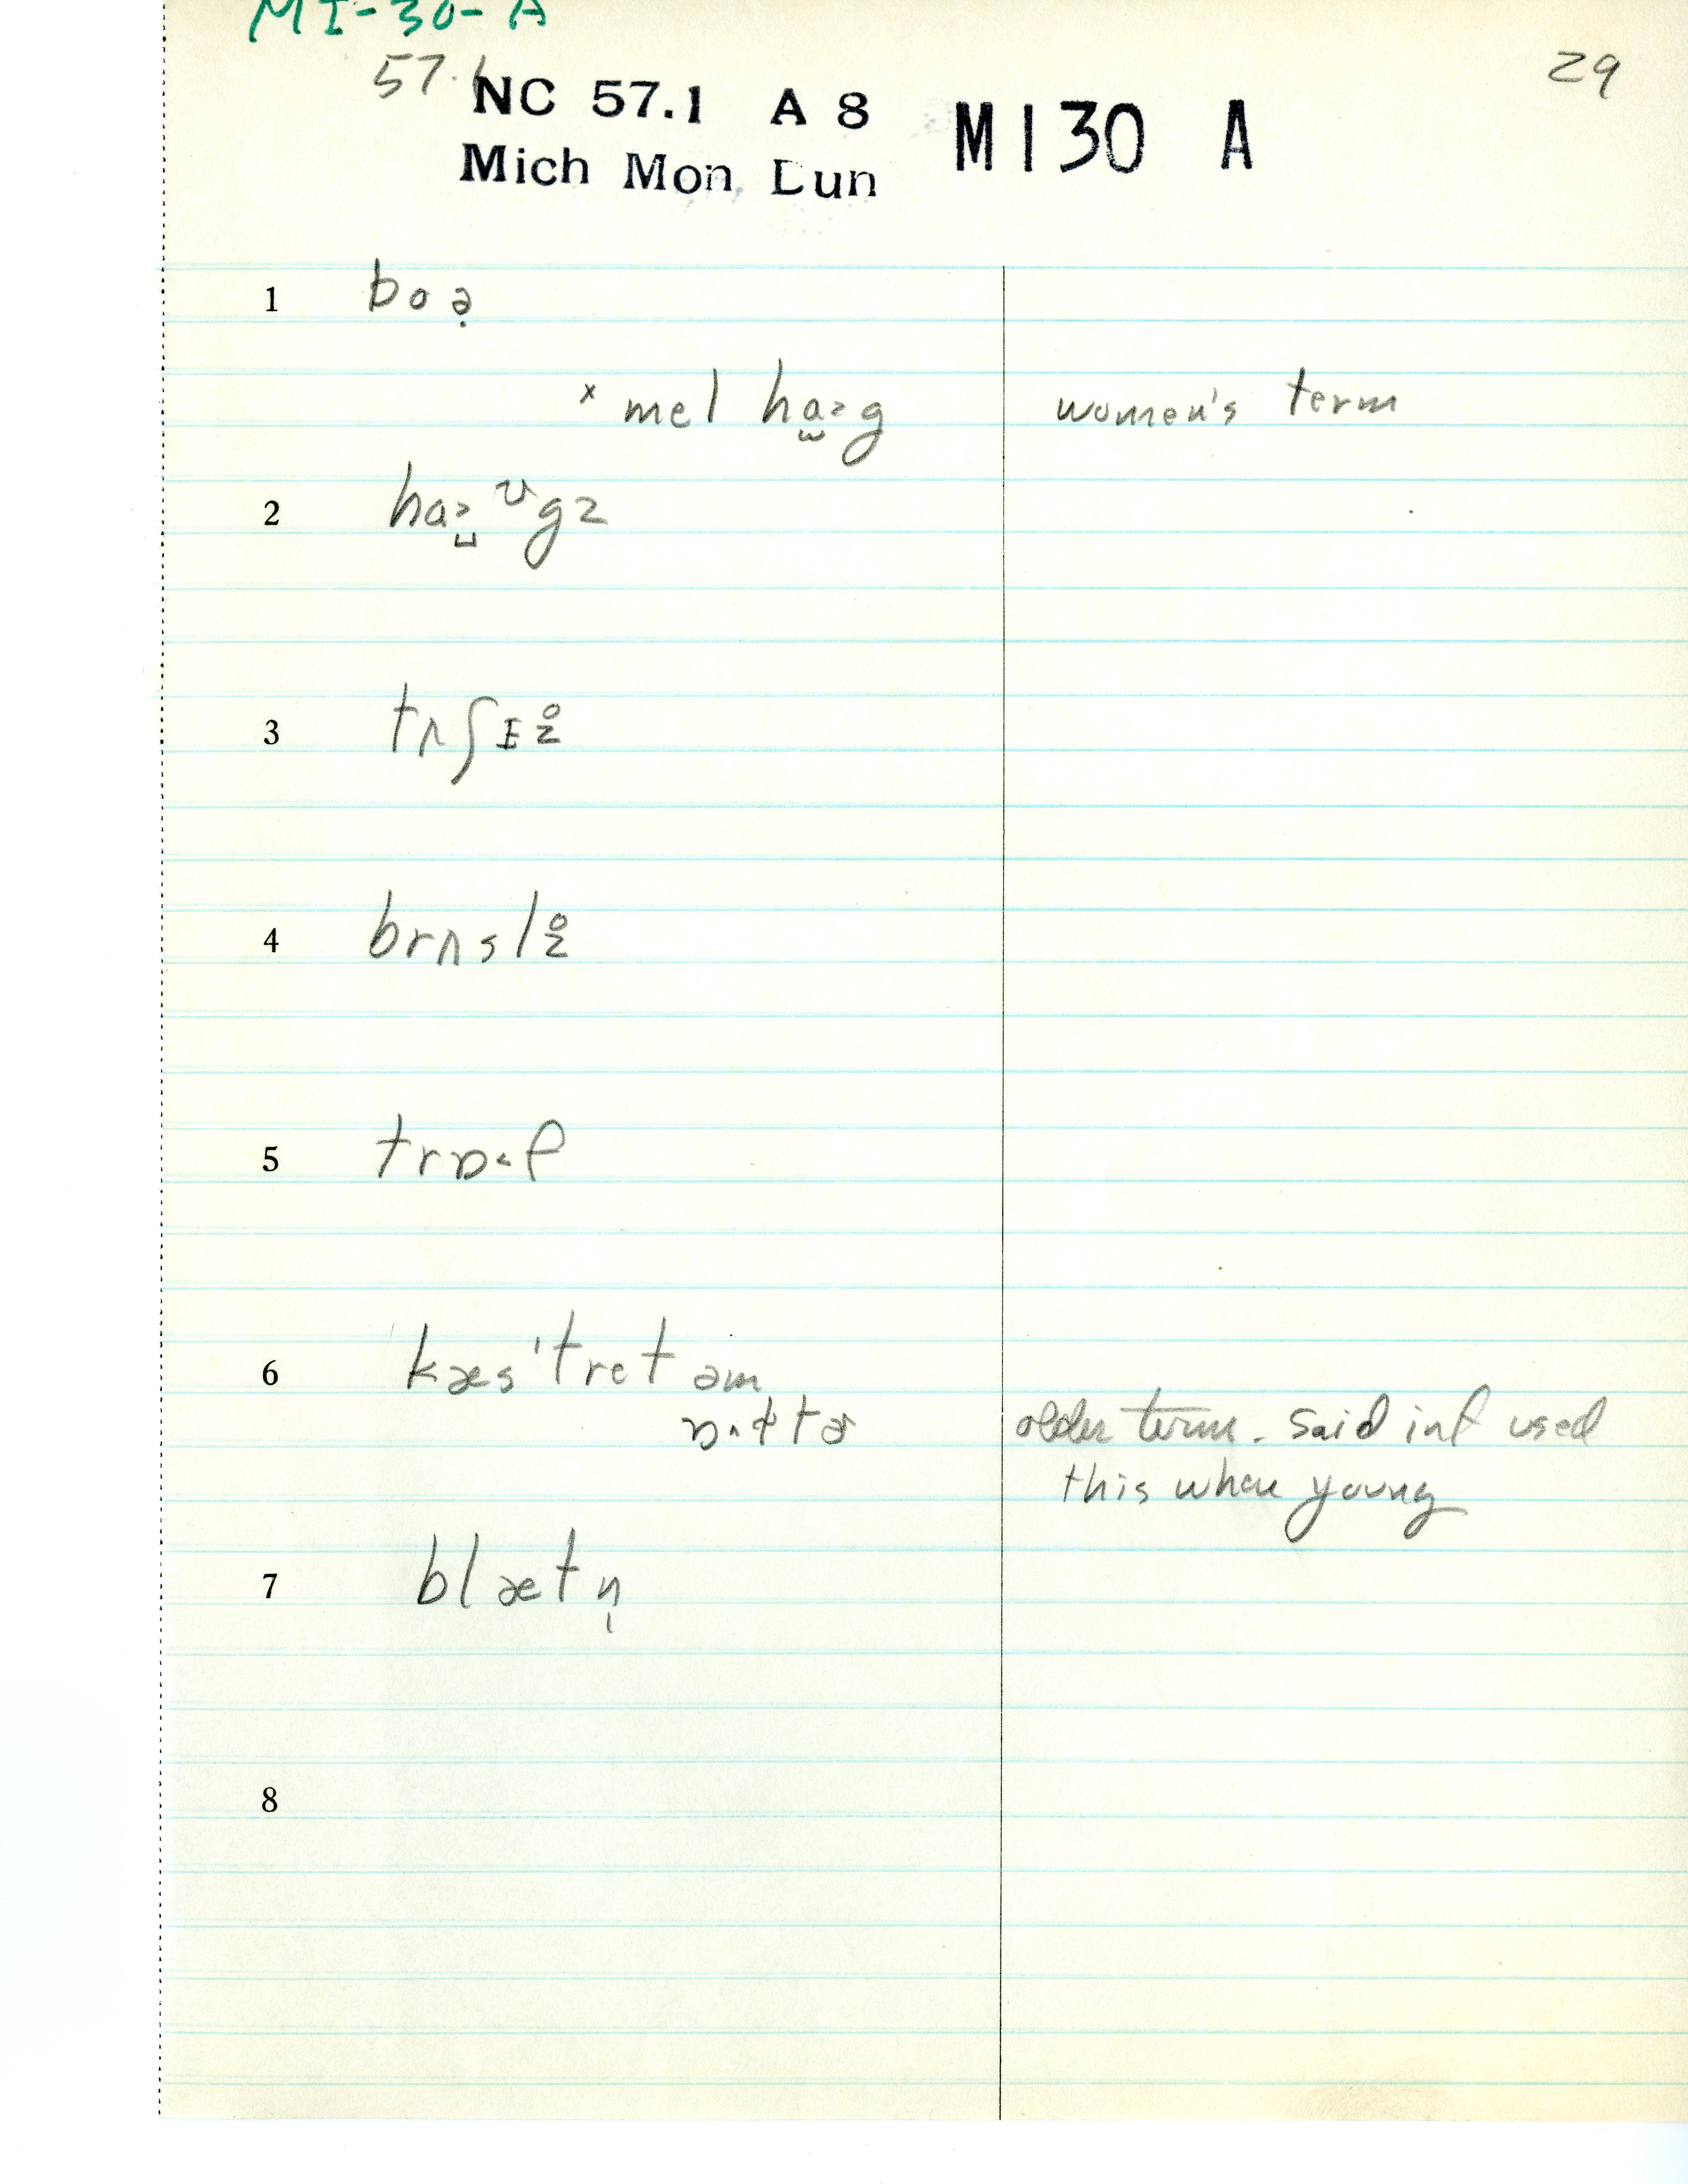 MI-30-A
57.1 29
NC 57.1 A 8 M I 30 A
Mich Mon Dun
1 boə̣
x mel ha̫ɜg women's term
2 haɜ̺ ʊgz
3 tʌʃɪz̥
4 brʌslz̥
5 trɒ˞f
6 kæs'tret əm
ɒ·ltɚ older term. Said inf used
this when young
7 blætn̩
8